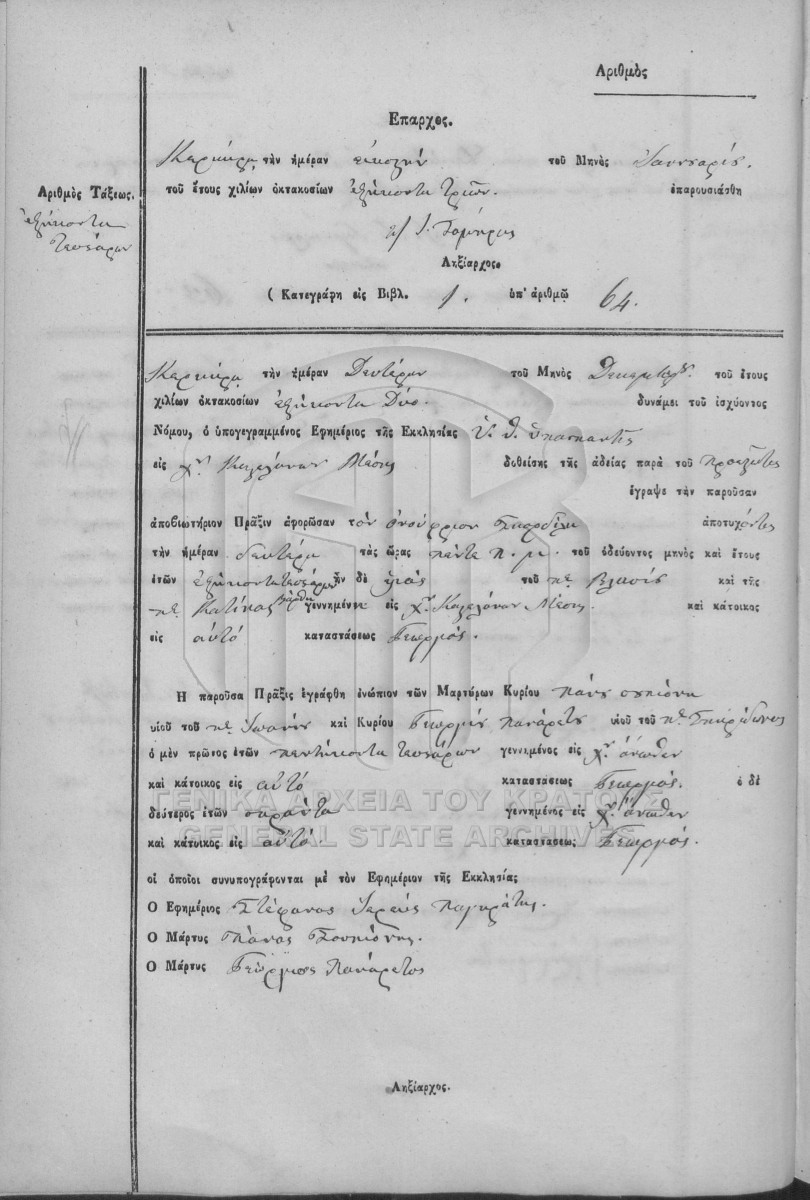 Αριθμὸς
Επαρχος.
Κερκύρᾳ τὴν ἡμέραν εἰκοστὴν τοῦ Μηνὸς Ἰαννουαρίου.
Αριθμὸς Τάξεως. τοῦ ἔτους χιλίων ὀκτακοσίων ἑξήκοντα τριῶν. ἐπαρουσιάσθη
ἑξήκοντα
τεσσάρων
Ληξίαρχος.
( Κατεγράφη εἰς Βιβλ. 1. ὑπ' ἀριθμῷ 64.
Κερκύρᾳ τὴν ἡμέραν Δευτέραν τοῦ Μηνὸς Δεκεμβρίου. τοῦ ἔτους
χιλίων ὀκτακοσίων ἑξήκοντα Δύο. δυνάμει τοῦ ἰσχύοντος
Νόμου, ὁ ὑπογεγραμμένος Εφημέριος τῆς Εκκλησίας Ὑ. Θ. Ὑπαπαντῆς
εἰς χ. Καλαφιόνων Μέσης δοθείσης τῆς ἀδείας παρὰ τοῦ
ἔγραψε τὴν παροῦσαν
ἀποβιωτήριον Πρᾶξιν ἀφορῶσαν τὸν ὀνούφριον ἀποτυχόντος
τὴν ἡμέραν δευτέρα τὰς ὥρας πέντε π. μ. τοῦ ὁδεύοντος μηνὸς καὶ ἔτους
ἐτῶν ἑξήκοντα τεσσάρων ἦν δὲ υἱὸς τοῦ πτ. Βλασίου καὶ τῆς
πτ. Κατίνας γεννημένος εἰς χ. Καλαφιόνων Μέσης. καὶ κάτοικος
εἰς αὐτό καταστάσεως Γεωργός.
Η παροῦσα Πρᾶξις ἐγράφθη ἐνώπιον τῶν Μαρτύρων Κυρίου Πάνου
υἱοῦ τοῦ πτ. Ἰωάννου καὶ Κυρίου Γεωργίου Πανάρετου υἱοῦ τοῦ πτ. Σπυρίδωνος
ὁ μὲν πρῶτος ἐτῶν πεντήκοντα τεσσάρων γεννημένος εἰς χ. ἄνωθεν
καὶ κάτοικος εἰς αὐτό καταστάσεως Γεωργός. ὁ δὲ
δεύτερος ἐτῶν σαράντα γεννημένος εἰς χ. ἄνωθεν
καὶ κάτοικος εἰς αὐτό. καταστάσεως Γεωργός.
οἱ ὁποῖοι συνυπογράφονται μὲ τὸν Εφημέριον τῆς Εκκλησίας
Ο Εφημέριος Στέφανος Ἱερεὺς Παγκράτης.
Ο Μάρτυς Πάνος
Ο Μάρτυς Γεώργιος Πανάρετος
Ληξίαρχος.
ΓΕΝΙΚΑ ΑΡΧΕΙΑ ΤΟΥ ΚΡΑΤΟΥΣ
GENERAL STATE ARCHIVES